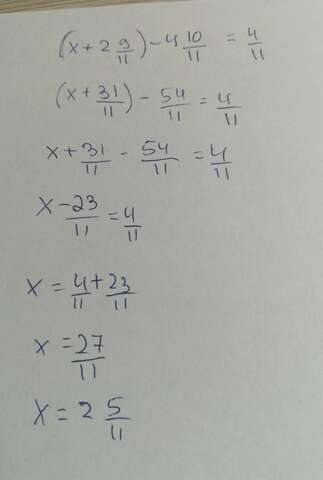 (x + 2 9/11) - 4 10/11 = 4/11
(x + 31/11) - 54/11 = 4/11
x + 31/11 - 54/11 = 4/11
x - 23/11 = 4/11
x = 4/11 + 23/11
x = 27/11
x = 2 5/11